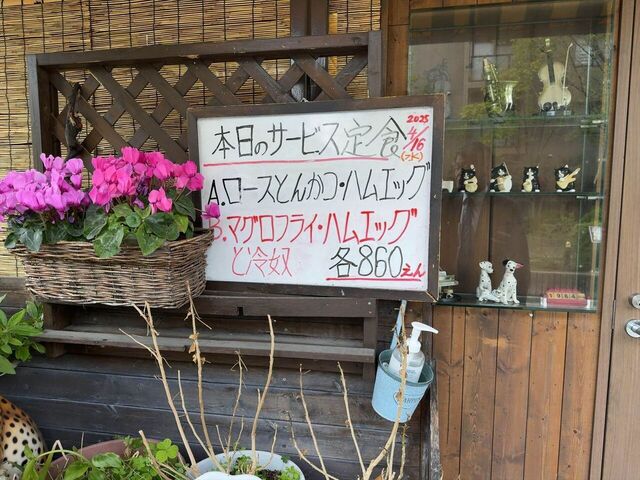 本日のサービス定食
2025
4/16
(水)
A.ロースとんかつ・ハムエッグ
B.マグロフライ・ハムエッグ
と冷奴
各860えん